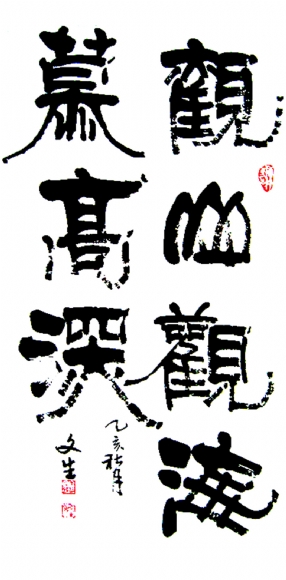 觀山觀海
慕高深
乙亥秋月
文生